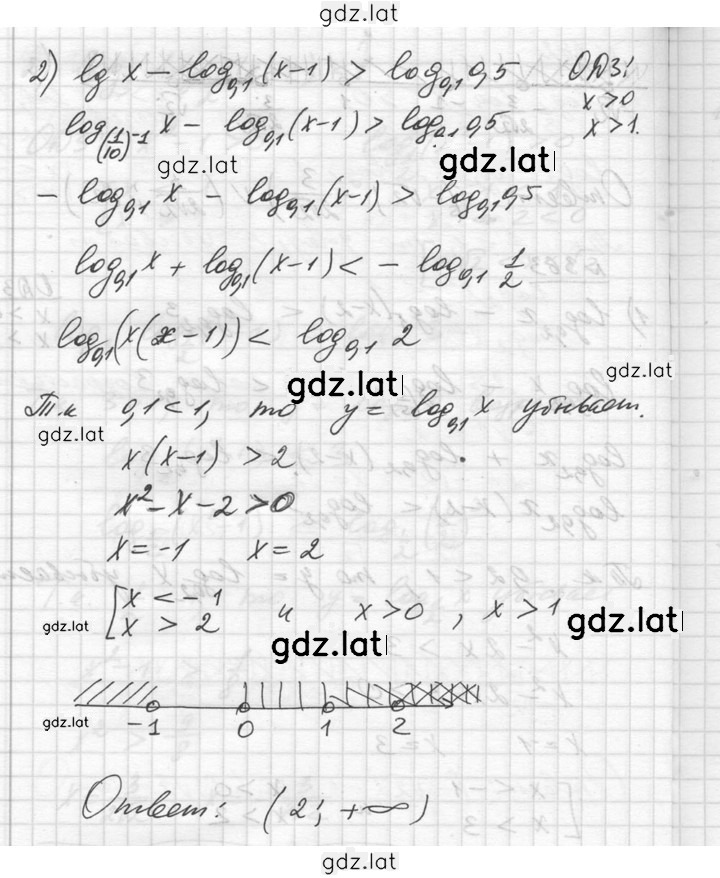 gdz.lat
2) lg x − log₀,₁(x−1) > log₀,₁ 0,5 ОДЗ:
x>0
log₍₁/₁₀₎⁻¹ x − log₀,₁(x−1) > log₀,₁ 0,5 x>1.
gdz.lat gdz.lat
− log₀,₁ x − log₀,₁(x−1) > log₀,₁ 0,5
log₀,₁ x + log₀,₁(x−1) < − log₀,₁ 1/2
log₀,₁(x(x−1)) < log₀,₁ 2
gdz.lat gdz.lat
Т.к 0,1<1, то y = log₀,₁ x убывает.
gdz.lat
x(x−1) > 2
x² − x − 2 > 0
x = −1 x = 2
[ x < −1
x > 2 и x>0 , x>1
gdz.lat gdz.lat gdz.lat
gdz.lat
−1 0 1 2
Ответ: (2; +∞)
gdz.lat